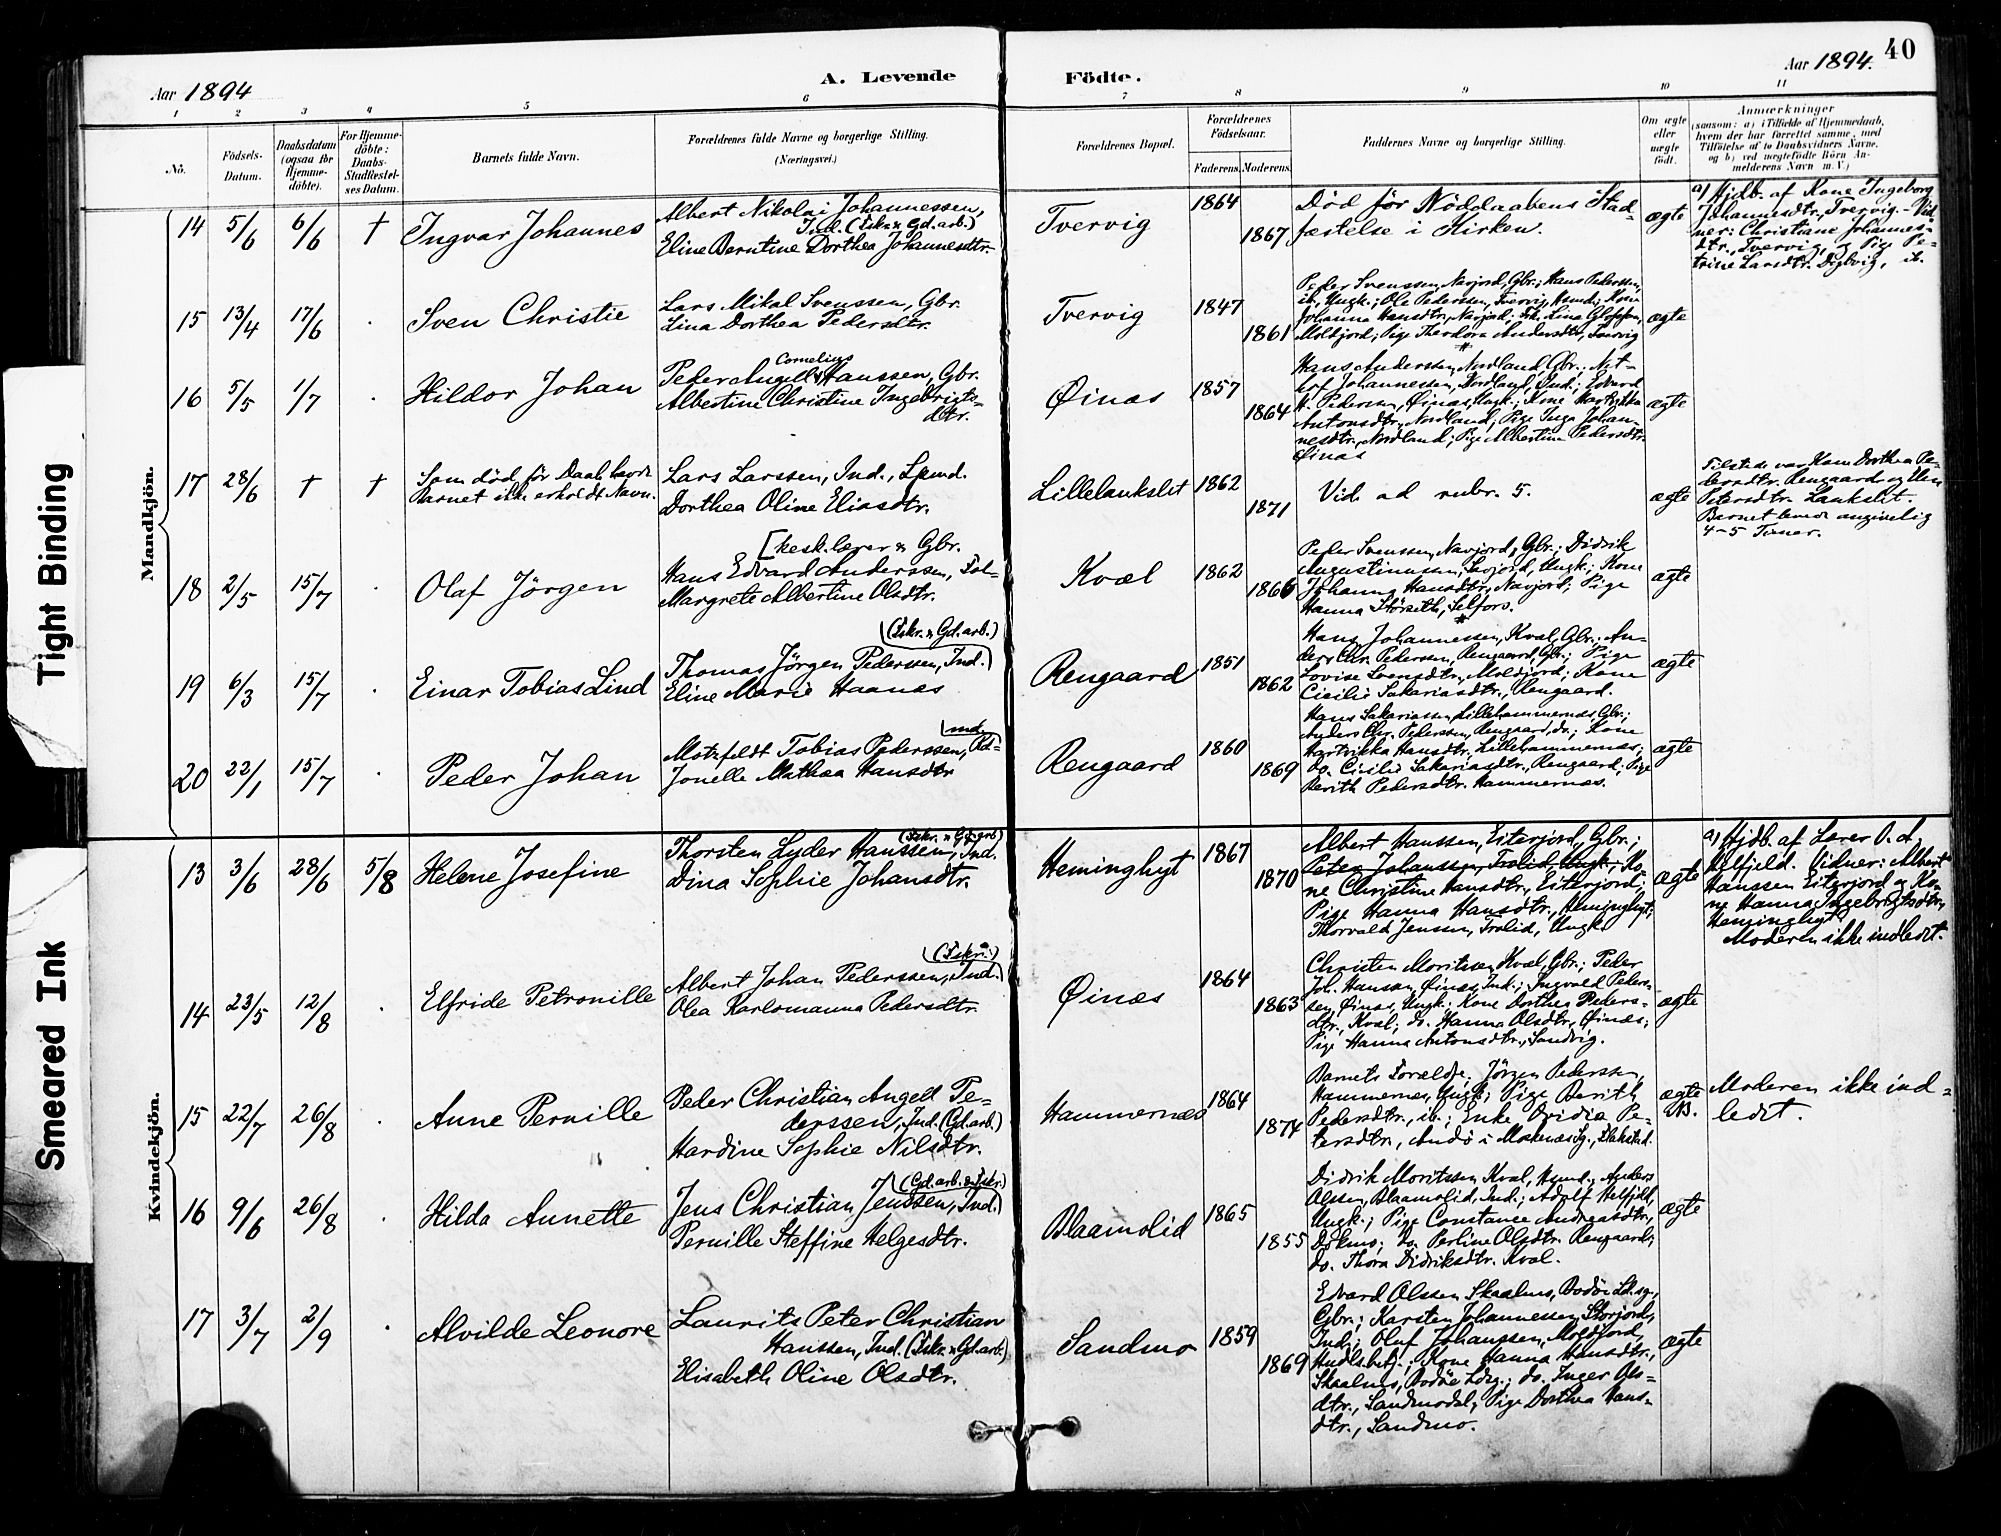 40
Aar 1894
A. Levende
Födte.
Aar 1894.
1 2 3 4 5 6 7 8 9 10 11
No.
Födsels-
Datum.
Daabsdatum
(ogsaa for
Hjemme-
döbte).
For Hjemme-
döbte:
Daabs-
Stadfæstel-
ses Datum.
Barnets fulde Navn.
Forældrenes fulde Navne og borgerlige Stilling.
(Næringsvei.)
Forældrenes Bopæl.
Forældrenes
Födselsaar.
Faderens. Moderens.
Faddernes Navne og borgerlige Stilling.
Om ægte
eller
uægte
født.
Anmærkninger
(saasom: a) i Tilfælde af Hjemmedaab,
hvem der har forrettet samme, med
Tilföielse af to Daabsvidners Navne,
og b) ved uægtefödte Börn An-
melderens Navn m. V.)
Mandkjön.
14 5/6 6/6 † Ingvar Johannes
Albert Nikolai Johannessen,
Ind. (Fskr. & Gd. arb.)
Eline Berntine Dorthea Johannesdtr.
Tvervig
1864
1867
Död før Nöddaabens Stad-
fæstelse i Kirken.
ægte
a) Hjdb. af Kone Ingeborg
Johannesdtr., Tvervig. - Vid-
ner: Christiane Johannes-
dtr., Tvervig, og Pige Pe-
trine Larsdtr. Digervig, ib.
15 13/4 17/6 . Sven Christie
Lars Mikal Svenssen, Gbr.
Lina Dorthea Pedersdtr.
Tvervig
1847
1861
Peder Svenssen, Navjord, Gbr.; Hans Pederssen,
ib., Ungk.; Ole Pederssen, Tvervig, Hmd.; Kone
Johanna Hansdtr., Navjord; Frk. Lina
Moldjord; Pige Theodora Andersdtr., Tvervig
ægte
16 5/5 1/7 . Hildor Johan
Cornelius
Peder Angell Hanssen, Gbr.
Albertine Christine Ingebrigts-
dtr.
Øinæs
1857
1864
Hans Anderssen, Nordland, Gbr.; Net-
lof Johannessen, Nordland, Ind.; Edvard
H. Pedersen, Øinæs, Ungk.; Kone Hartvikka
Antonsdtr., Nordland; Pige Inga Johan-
nesdtr., Nordland; Pige Albertine Pedersdtr.
Øinæs
ægte
17 28/6 † † Som död för Daab havde
Barnet ikke erholdt Navn.
Lars Larssen, Ind., Lpmd.
Dorthea Oline Eliasdtr.
Lillelankslit
1862
1871
Vid. ad rubr. 5.
ægte
Tilstede var Kone Dorthea Pe-
dersdtr. Rengaard og Elen
Petersdtr. Lankslit.
Barnet levede angivelig
4-5 Timer.
18 2/5 15/7 . Olaf Jörgen
[keskolærer & Gbr.
Hans Edvard Anderssen, Fol-
Margrete Albertine Olsdtr.
Kvæl
1862
1866
Peder Svenssen, Navjord, Gbr.; Didrik
Augustinussen, Savjord, Ungk.; Kone
Johanna Hansdtr., Navjord; Pige
Hanna Störseth, Selfors.
ægte
19 6/3 15/7 . Einar Tobias Lind
(Fskr. & Gd. arb.)
Thomas Jörgen Pederssen, Ind.
Eline Marie Haanæs
Rengaard
1851
1862
Hans Johannessen, Kval, Gbr.; An-
ders Chr. Pederssen, Rengaard, Gbr.; Pige
Lovise Svensdtr., Moldjord; Kone
Cicilie Sakariasdtr., Rengaard.
ægte
20 22/1 15/7 . Peder Johan
Motzfeldt Tobias Pederssen, Ind.
Jonelle Mathea Hansdtr
Rengaard
1860
1869
Hans Sakariassen, Lillehammernæs, Gbr.;
Anders Chr. Pederssen, Rengaard, do.; Kone
Hartvikka Hansdtr., Lillehammernæs;
Do. Cicilie Sakariasdtr., Rengaard; Pige
Berith Pedersdtr. Hammernæs.
ægte
Kvindekjön.
13 3/6 28/6 5/8 Helene Josefine
(Fskr. & Gd. arb)
Thorsten Lyder Hanssen, Ind.
Dina Sophie Johansdtr.
Heminghyt
1867
1870
Albert Hanssen, Eiterjord, Gbr.;
Peter Johanssen, Trolid, Ungk.; Ko-
ne Christine Hansdtr., Eiterjord;
Pige Hanna Hansdtr., Heminghyt;
Thorvald Jenssen, Trolid, Ungk.
ægte
a) Hjdb. af Lærer O. A.
Helfjeld. Vidner: Albert
Hanssen Eiterjord og Ko-
ne Hanna Ingebrigtsdtr,
Heminghyt.
Moderen ikke indledet.
14 23/5 12/8 . Elfride Petronille
(Fskr.)
Albert Johan Pederssen, Ind.
Olea Karlomanna Pedersdtr.
Øinæs
1864
1863
Christen Moritssen, Kval, Gbr.; Peder
Joh. Hansen, Øinæs, Ind.; Ingvald Peder-
sen, Øinæs, Ungk.; Kone Dorthea Peders-
dtr., Kval; do. Hanna Olsdtr., Øinæs;
Pige Hanna Antonsdtr., Sandvig.
ægte
15 22/7 26/8 . Anne Pernille
Peder Christian Angell Pe-
derssen, Ind. (Gd. arb.)
Hardine Sophie Nilsdtr.
Hammernæs
1864
1874
Barnets Forældre; Jörgen Pederssen,
Hammernæs, Ungk.; Pige Berith
Pedersdtr., ib.; Enke Ovidia Pe-
tersdtr., Andö i Moskenæs Sg., Flakstad.
ægte
Moderen ikke ind-
ledet.
16 9/6 26/8 . Hilda Annette
(Gd. arb. & Fskr.)
Jens Christian Jenssen, Ind.
Pernille Steffine Helgesdtr.
Blaamolid
1865
1855
Didrik Moritssen, Kval, Hmd.; Anders
Olssen, Blaamolid, Ind.; Adolf Helfjeld,
Ungk.; Pige Constance Andreasdtr.,
Dokmo; do. Perline Olsdtr. Rengaard;
do. Thora Didriksdtr. Kval.
ægte
17 3/7 2/9 . Alvilde Leonore
Laurits Peter Christian
Hanssen, Ind. (Fskr. & Gd. arb.)
Elisabeth Oline Olsdtr.
Sandmo
1859
1869
Edvard Olssen Skaalnes, Bodöe Ld. sg.,
Gbr.; Karsten Johannessen, Storjord,
Ind.; Oluf Johanssen, Moldjord,
Hndls.betj.; Kone Hanna Hansdtr.,
Skaalnes, Bodöe Ldsg.; do. Inger Ols-
dtr., Sandmodal; Pige Dorthea Hans-
dtr., Sandmo.
ægte
Tight Binding
Smeared Ink